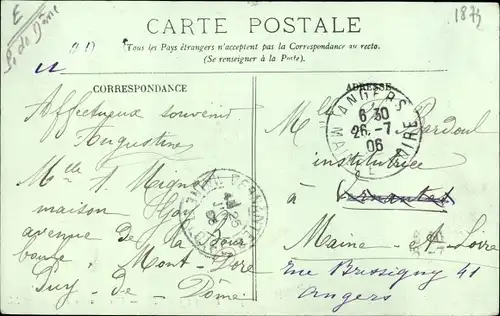 E
P. de Dôme
1874
CARTE POSTALE
Tous les Pays étrangers n'acceptent pas la Correspondance au recto.
(Se renseigner à la Poste).
CORRESPONDANCE
Affectueux souvenir
Augustine
Mlle A. Mignet
maison
avenue de la Bour
boule Mont-Dore
Puy-de-Dôme
ADRESSE
Mlle Bardoul
institutrice
à Vernantes
Maine-et-Loire
rue Bressigny 41
Angers
ANGERS
6 30
26-7
06
MAINE LOIRE